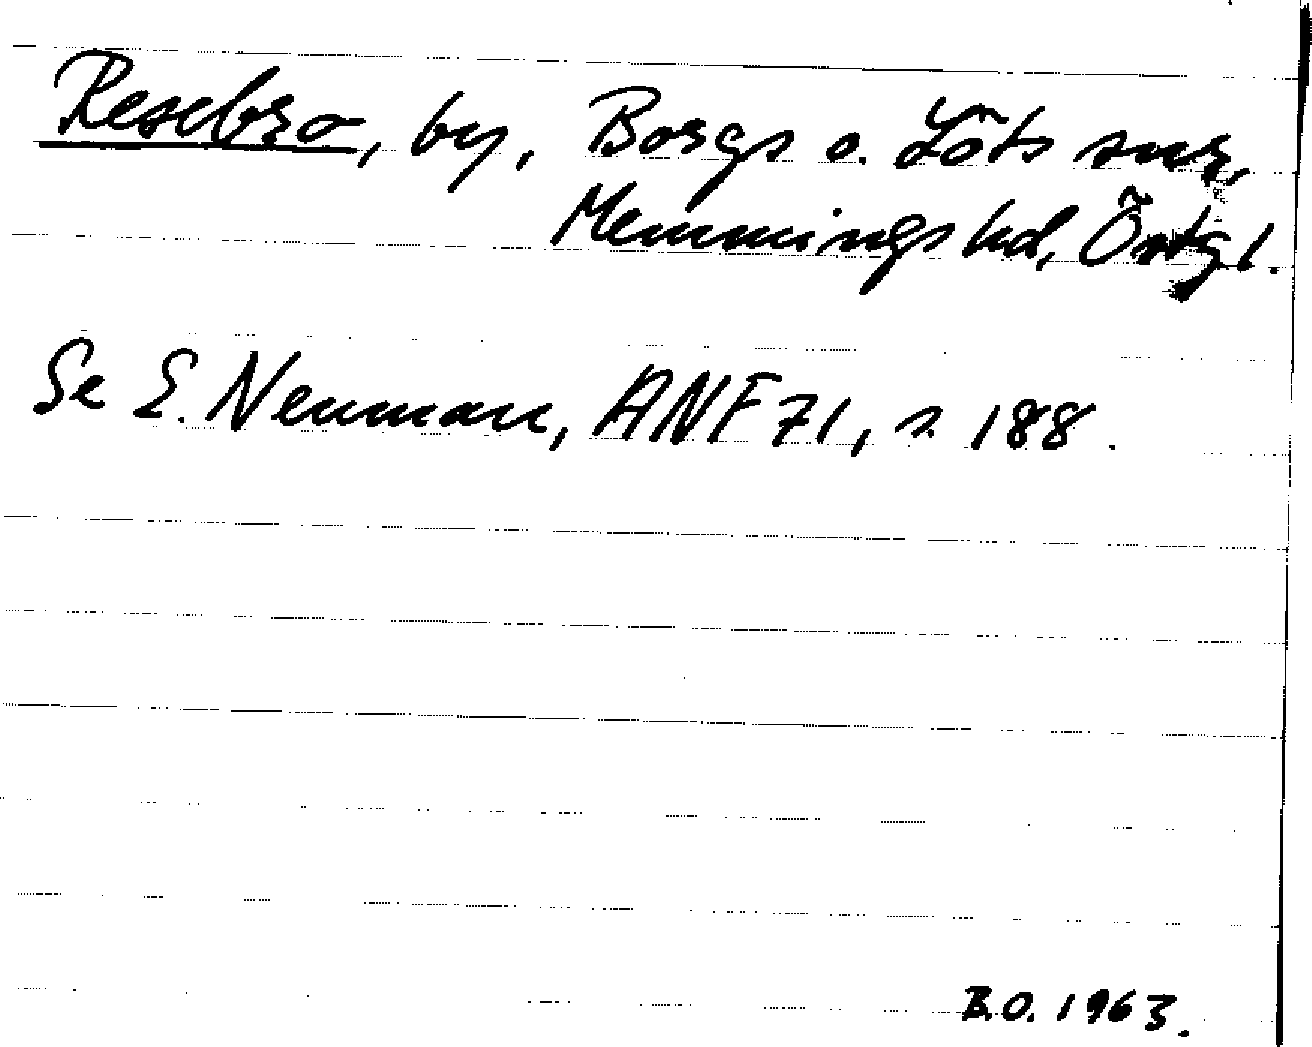 Resebro, by, Borgs o. Löts snr,
Memmings hd, Östgl.
Se E. Neuman, ANF 71, s. 188.
B.O. 1963.